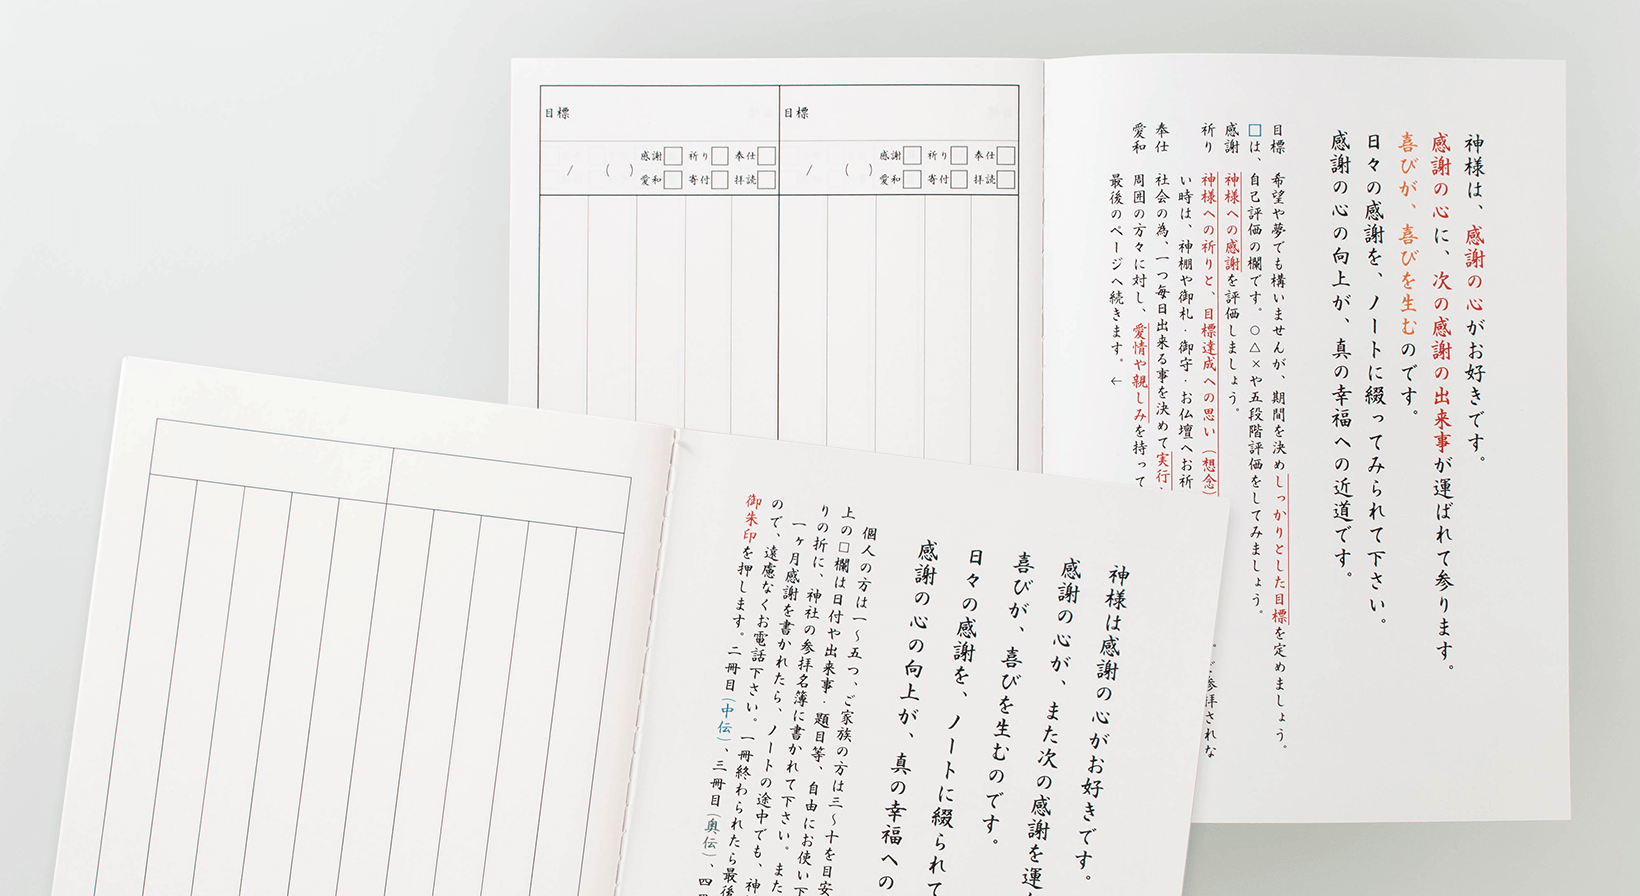 神様は、感謝の心がお好きです。
感謝の心に、次の感謝の出来事が運ばれて参ります。
喜びが、喜びを生むのです。
日々の感謝を、ノートに綴ってみられて下さい。
感謝の心の向上が、真の幸福への近道です。
目標 希望や夢でも構いませんが、期間を決めしっかりとした目標を定めましょう。
□は、自己評価の欄です。○△×や五段階評価をしてみましょう。
感謝 神様への感謝を評価しましょう。
祈り 神様への祈りと、目標達成への思い（想念）
い時は、神棚や御札・御守・お仏壇へお祈
奉仕 社会の為、一つ毎日出来る事を決めて実行
愛和 周囲の方々に対し、愛情や親しみを持って
最後のページへ続きます。←
ご参拝されな
目標
感謝□ 祈り□ 奉仕□
/ ( ) 愛和□ 寄付□ 拝読□
目標
感謝□ 祈り□ 奉仕□
/ ( ) 愛和□ 寄付□ 拝読□
神様は感謝の心がお好きです。
感謝の心が、また次の感謝を運
喜びが、喜びを生むのです。
日々の感謝を、ノートに綴られて
感謝の心の向上が、真の幸福への
個人の方は一～五つ、ご家族の方は三～十を目安
上の□欄は日付や出来事・題目等、自由にお使い下
りの折に、神社の参拝名簿に書かれて下さい。また
一ヶ月感謝を書かれたら、ノートの途中でも、神
ので、遠慮なくお電話下さい。一冊終わられたら最後
御朱印を押します。二冊目（中伝）、三冊目（奥伝）、四